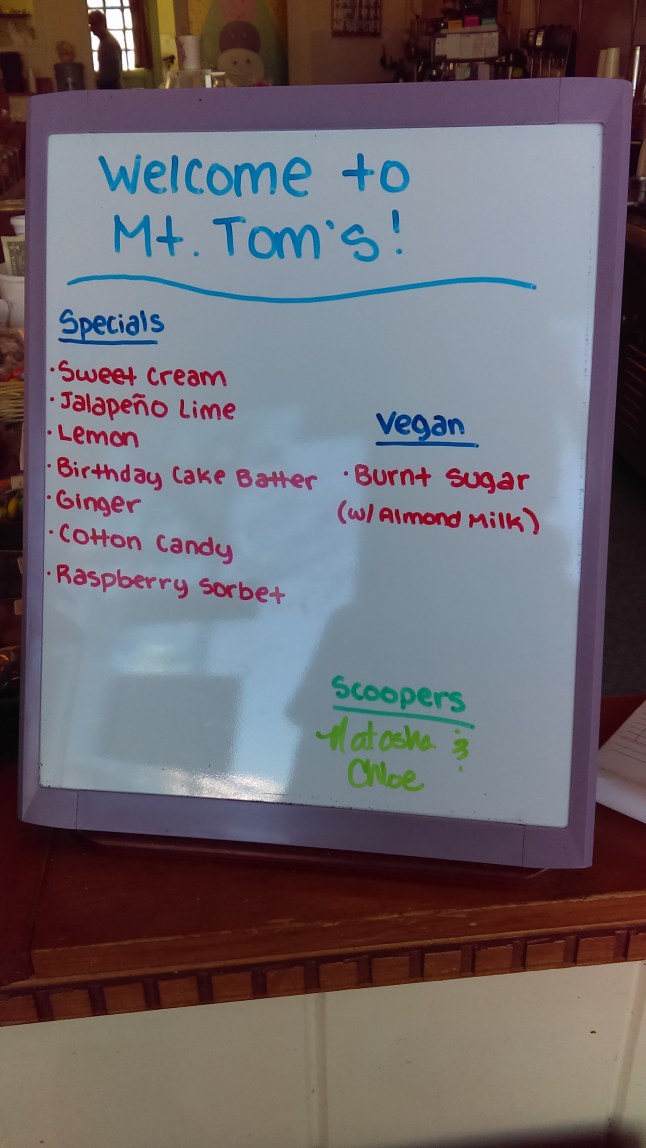 Welcome to
Mt. Tom's!
Specials
· Sweet Cream
· Jalapeño Lime
· Lemon
· Birthday Cake Batter
· Ginger
· Cotton Candy
· Raspberry Sorbet
Vegan
· Burnt Sugar
(w/ Almond Milk)
Scoopers
Natasha &
Chloe